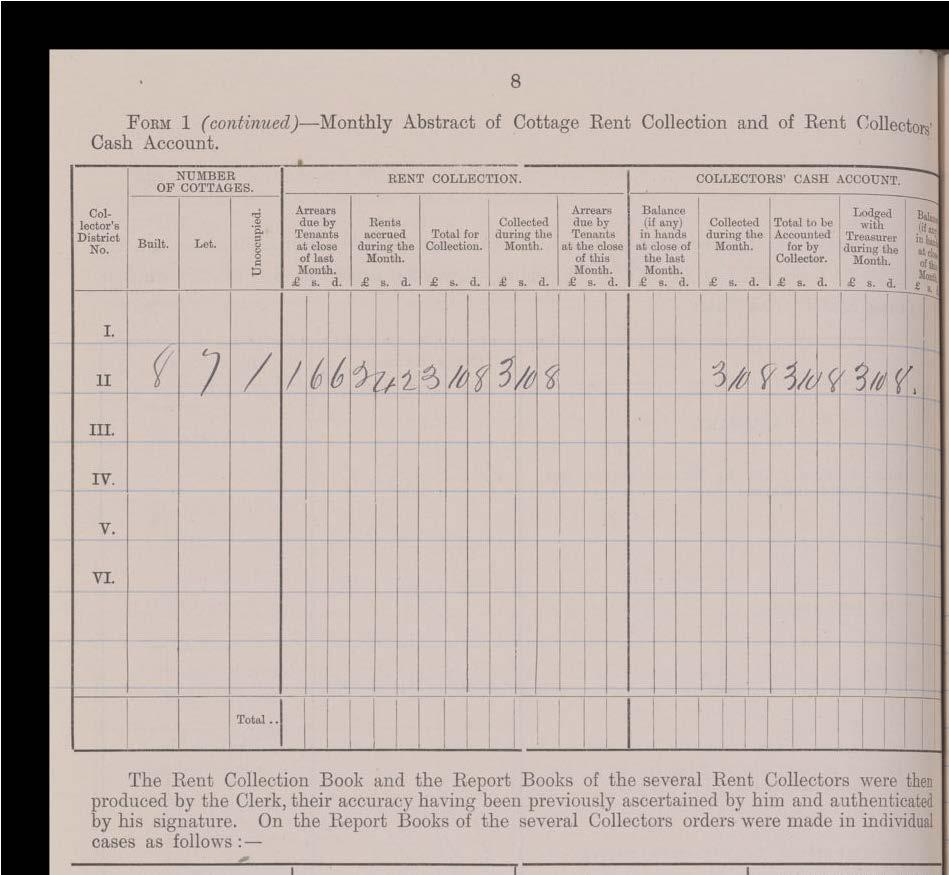 8
FORM 1 (continued)—Monthly Abstract of Cottage Rent Collection and of Rent Collectors'
Cash Account.
NUMBER
OF COTTAGES.
RENT COLLECTION.
COLLECTORS' CASH ACCOUNT.
Col-
lector's
District
No.
Built.
Let.
Unoccupied.
Arrears
due by
Tenants
at close
of last
Month.
£ s. d.
Rents
accrued
during the
Month.
£ s. d.
Total for
Collection.
£ s. d.
Collected
during the
Month.
£ s. d.
Arrears
due by
Tenants
at the close
of this
Month.
£ s. d.
Balance
(if any)
in hands
at close of
the last
Month.
£ s. d.
Collected
during the
Month.
£ s. d.
Total to be
Accounted
for by
Collector.
£ s. d.
Lodged
with
Treasurer
during the
Month.
£ s. d.
(if any
at
of
£ s.
I.
II 8 7 1 1 6 6 2 4 2 3 10 8 3 10 8 3 10 8 3 10 8 3 10 8
III.
IV.
V.
VI.
Total ..
The Rent Collection Book and the Report Books of the several Rent Collectors were then
produced by the Clerk, their accuracy having been previously ascertained by him and authenticated
by his signature. On the Report Books of the several Collectors orders were made in individual
cases as follows :—